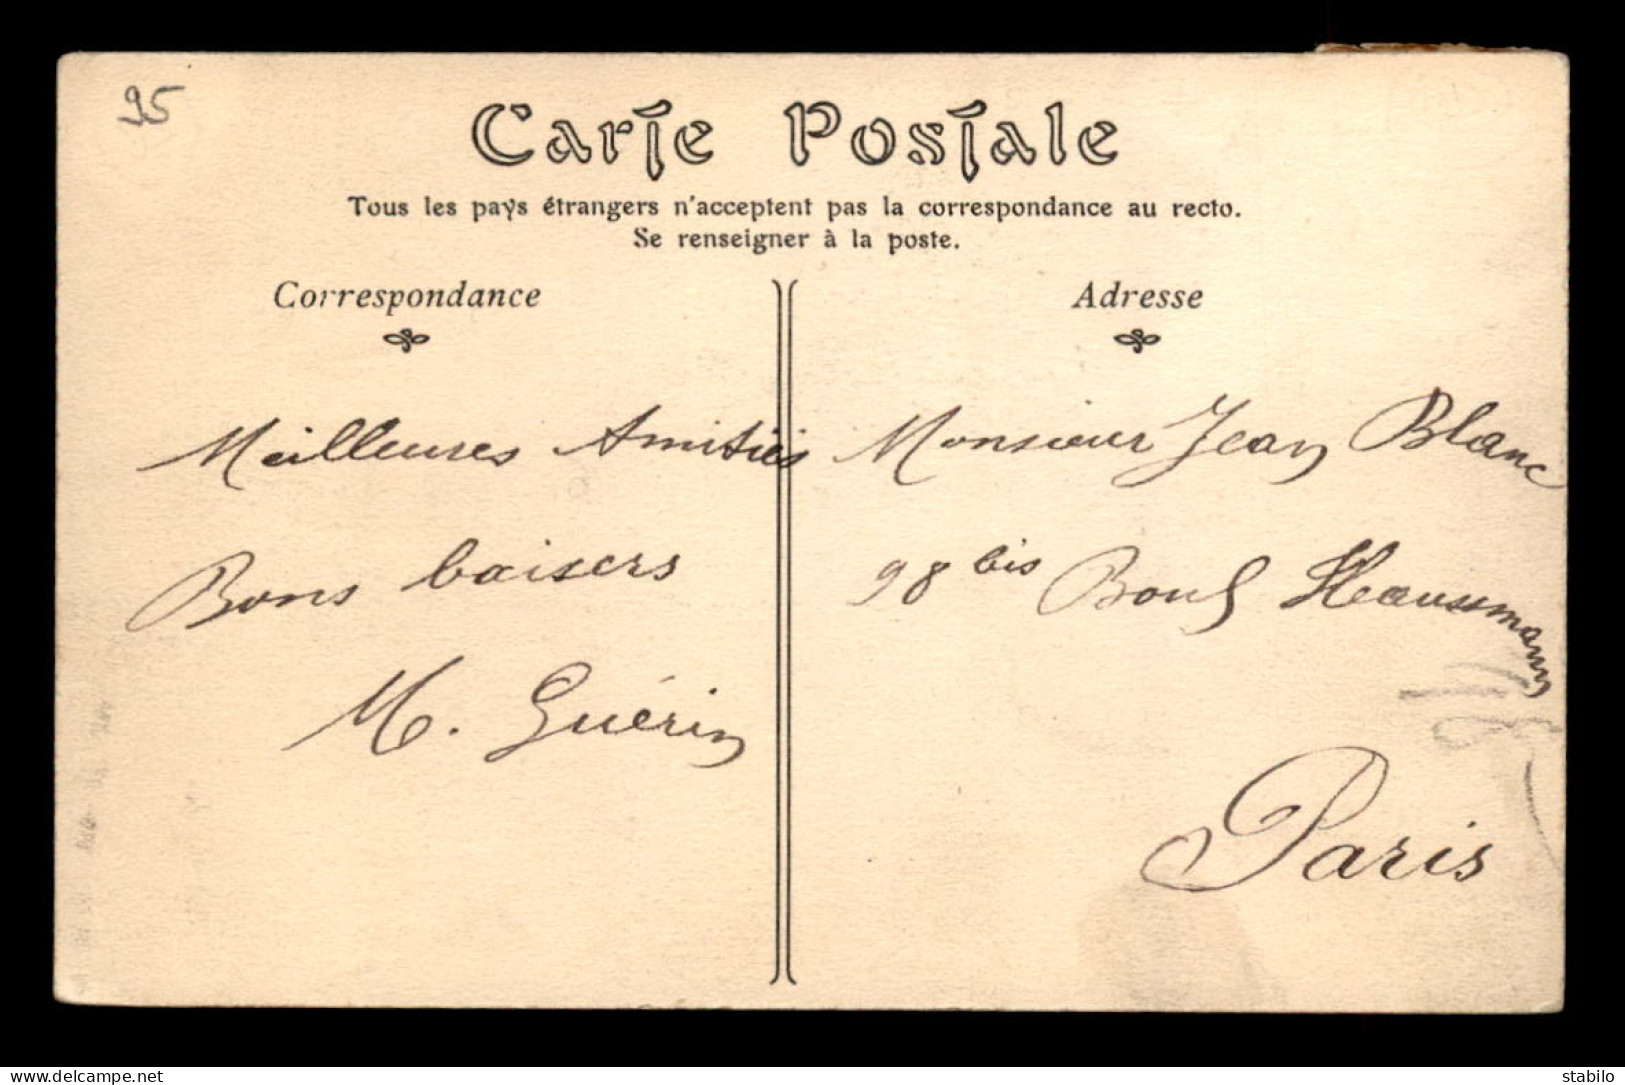 95
Carte Postale
Tous les pays étrangers n'acceptent pas la correspondance au recto.
Se renseigner à la poste.
Correspondance
Meilleures Amitiés
Bons baisers
M. Guérin
Adresse
Monsieur Jean Blanc
98 bis Boul Haussmann
Paris
delcampe.net
stabilo